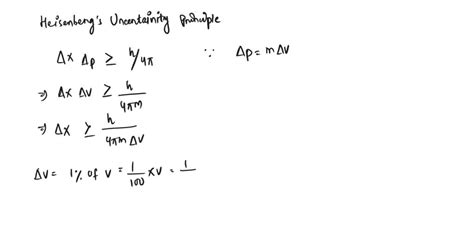 Heisenberg's Uncertainity Principle
Δx Δp ≥ h/4π ∵ Δp = mΔv
⇒ Δx Δv ≥ h/4πm
⇒ Δx ≥ h/4πm Δv
Δv = 1% of v = 1/100 × v = 1/